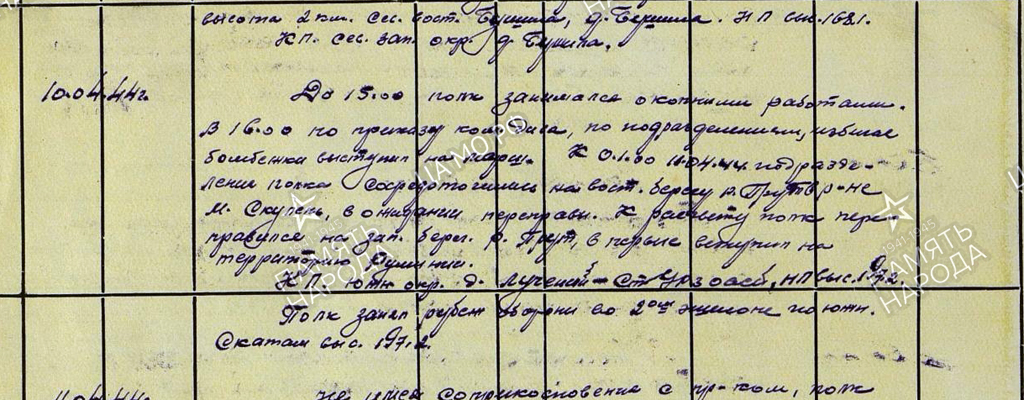 высота 2 км. сев. вост. Бушила, д. Бушила. НП выс. 168.1.
КП. сев. зап. окр. д Бушила.
10.04.44г. До 15.00 полк занимался окопными работами.
В 16.00 по приказу ком. дива, по подразделениям, избегая
бомбежки выступил на марш. К 01.00 11.04.44. подразде-
ления полка сосредоточились на вост. берегу р. Прут в р-не
м. Скулень, в ожидании переправы. К рассвету полк пере-
правился на зап. берег. р. Прут, в первые вступил на
территорию Румынии.
КП. южн окр. д. НП выс.
Полк занял рубеж обороны во 2ом эшелоне по южн.
Скатам выс. 197.2.
11.04.44г. Не имея соприкосновения с пр-ком, полк
ПАМЯТЬ НАРОДА
ЦАМО.РФ
1941-1945
ПАМЯТЬ НАРОДА